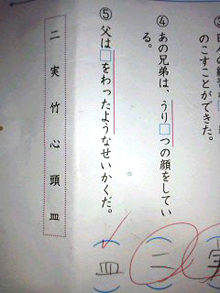 のこすことができた。
④ あの兄弟は、うり□つの顔をしてい
る。
⑤ 父は□をわったようなせいかくだ。
二 実 竹 心 頭 皿
二
皿